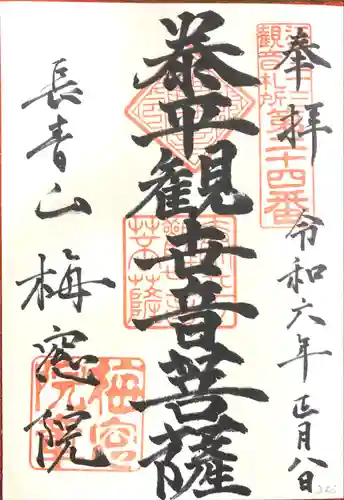 奉拝
江戸三十三
観音札所
第二十四番
令和六年正月八日
泰平観世音菩薩
長青山梅窓院
梅窓
院